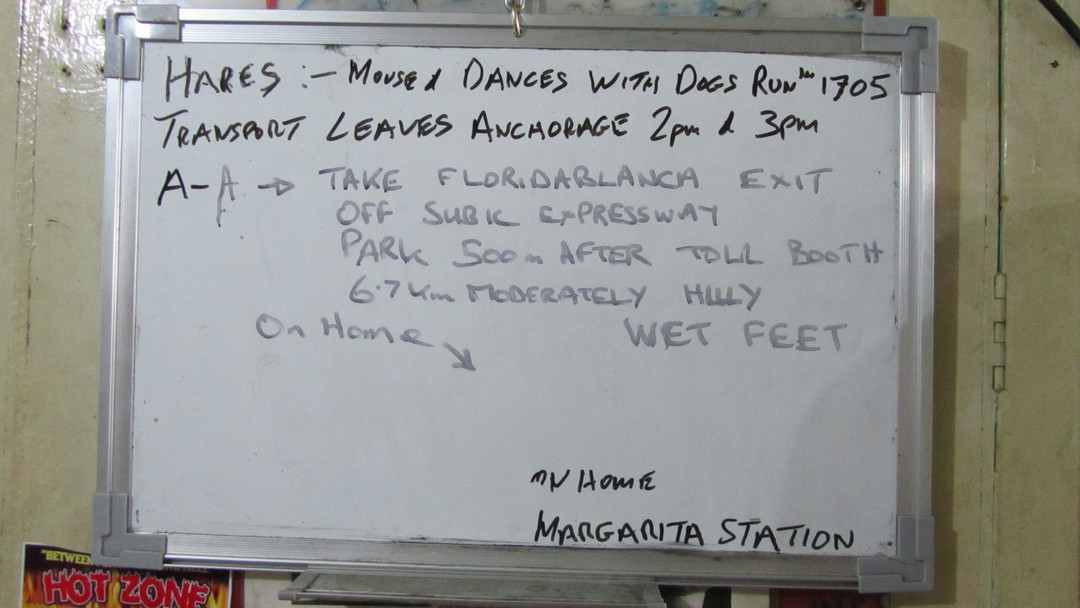 HARES :- MOUSE & DANCES WITH DOGS RUN No 1705
TRANSPORT LEAVES ANCHORAGE 2pm & 3pm
A-A → TAKE FLORIDABLANCA EXIT
OFF SUBIC EXPRESSWAY
PARK 500m AFTER TOLL BOOTH
6.7km MODERATELY HILLY
On Home ↘ WET FEET
ON HOME
MARGARITA STATION
BETWEEN
HOT ZONE